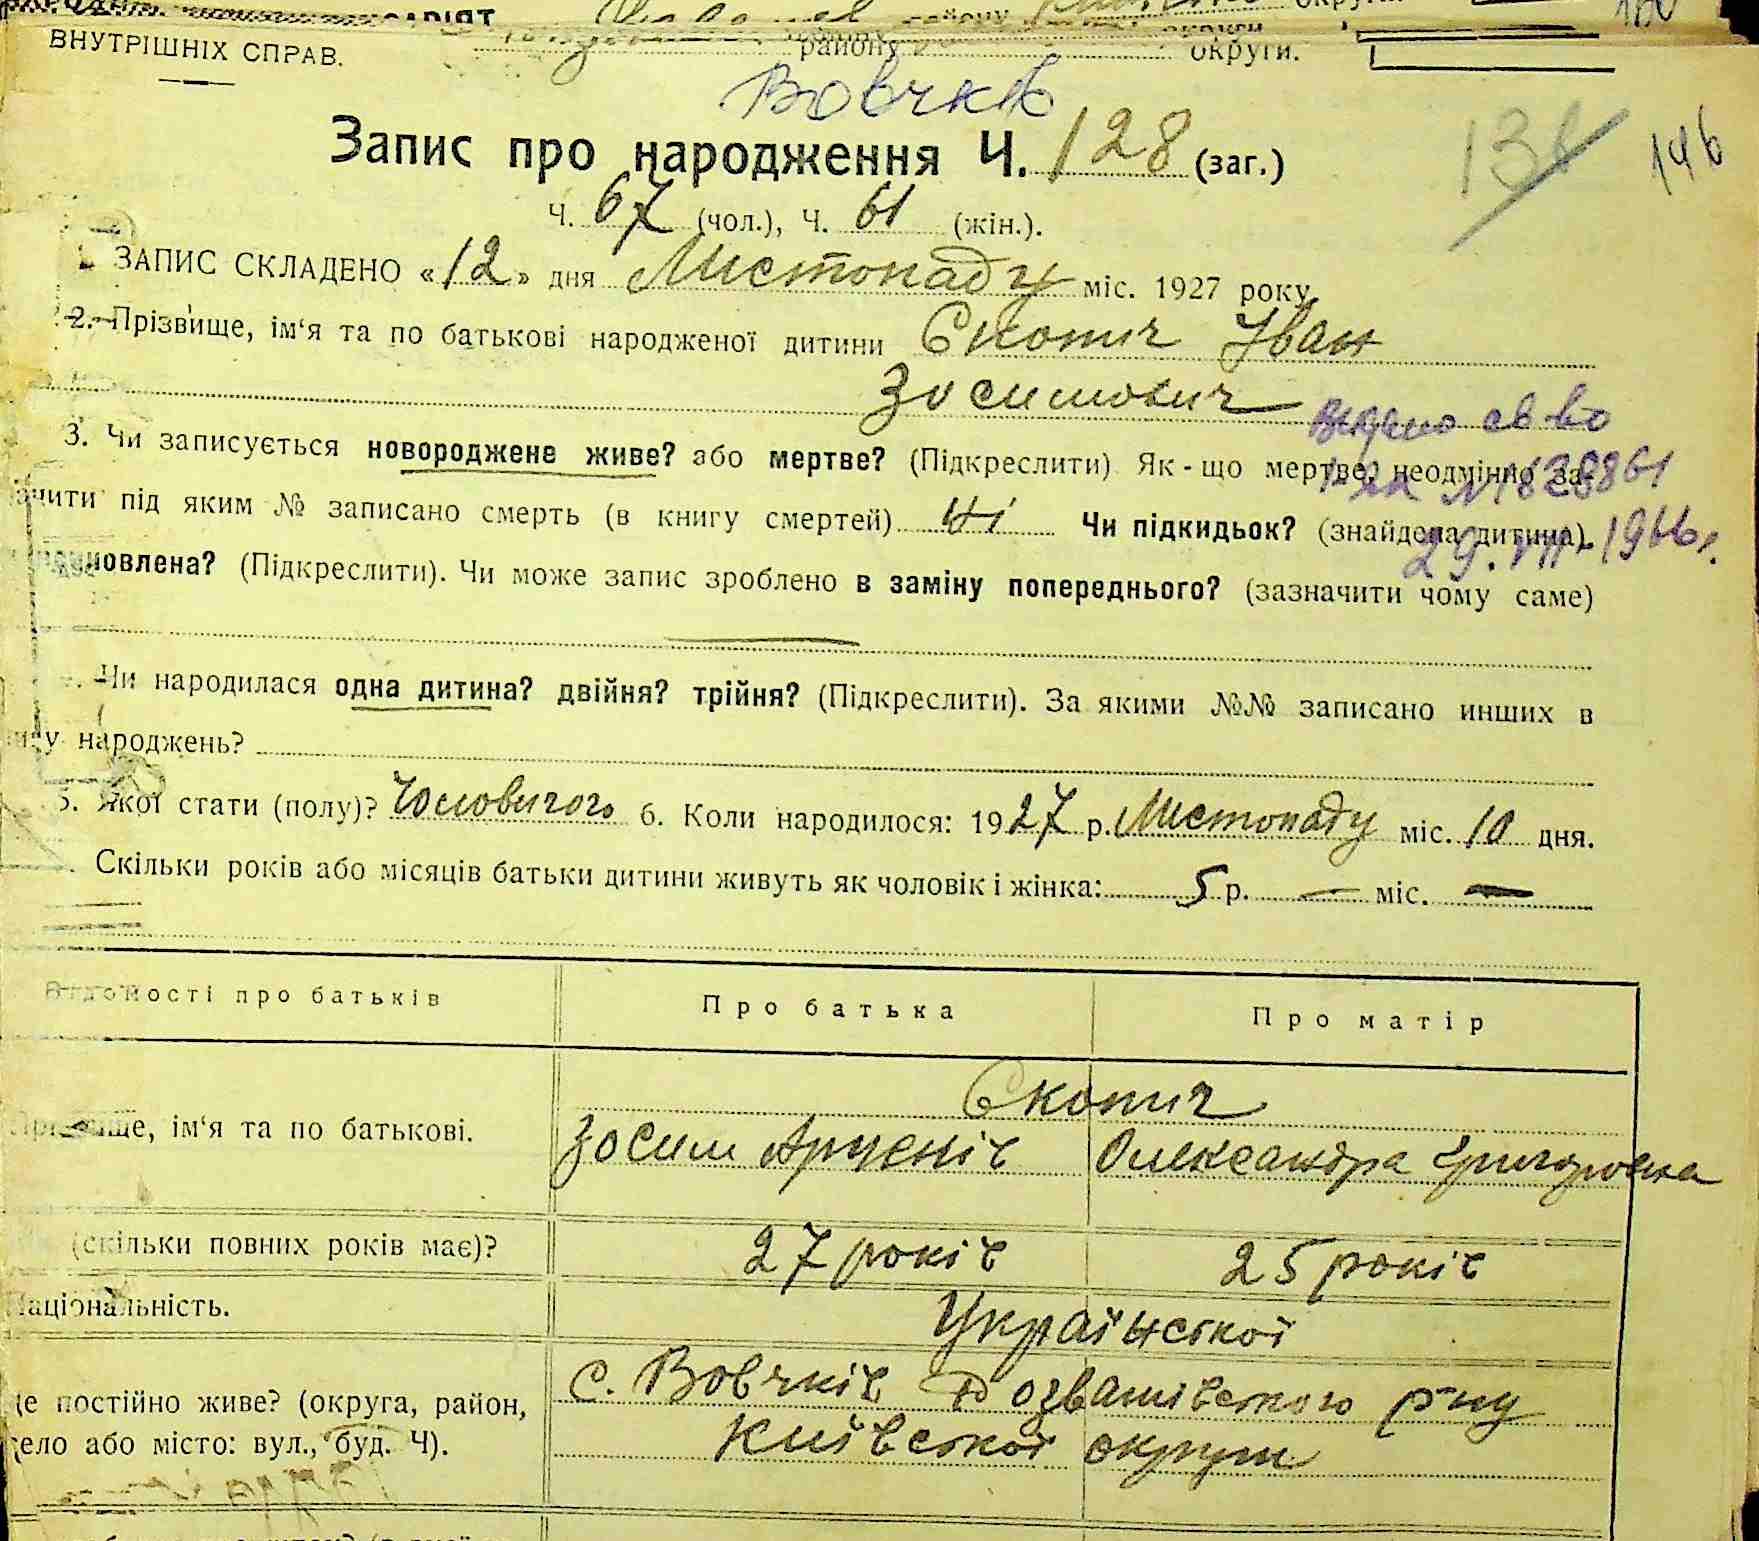 району округи.
ВНУТРІШНІХ СПРАВ. району округи.
Вовчків
Запис про народження Ч. 128 (заг.) 146
Ч. 67 (чол.), Ч. 61 (жін.).
ЗАПИС СКЛАДЕНО «12» дня Листопаду міс. 1927 року
2. Прізвище, ім‘я та по батькові народженої дитини Скопич Іван
Зосимович
Видано св-во
3. Чи записується новороджене живе? або мертве? (Підкреслити) Як-що мертве, неодмінно за-
значити під яким № записано смерть (в книгу смертей) Ні Чи підкидьок? (знайдена дитина).
29. VII 1966г.
(Підкреслити). Чи може запис зроблено в заміну попереднього? (зазначити чому саме)
Чи народилася одна дитина? двійня? трійня? (Підкреслити). За якими №№ записано инших в
народжень?
5. Якої стати (полу)? Чоловичого 6. Коли народилося: 1927 р. Листопаду міс. 10 дня.
Скільки років або місяців батьки дитини живуть як чоловік і жінка: 5 р. — міс. —
Відомості про батьків Про батька Про матір
Скопич
Прізвище, ім‘я та по батькові. Зосим Арсеніїв Олександра Григоровна
(скільки повних років має)? 27 років 25 років
Національність. Української
Де постійно живе? (округа, район, с. Вовчків р-ну
село або місто: вул., буд. Ч). Київської округи